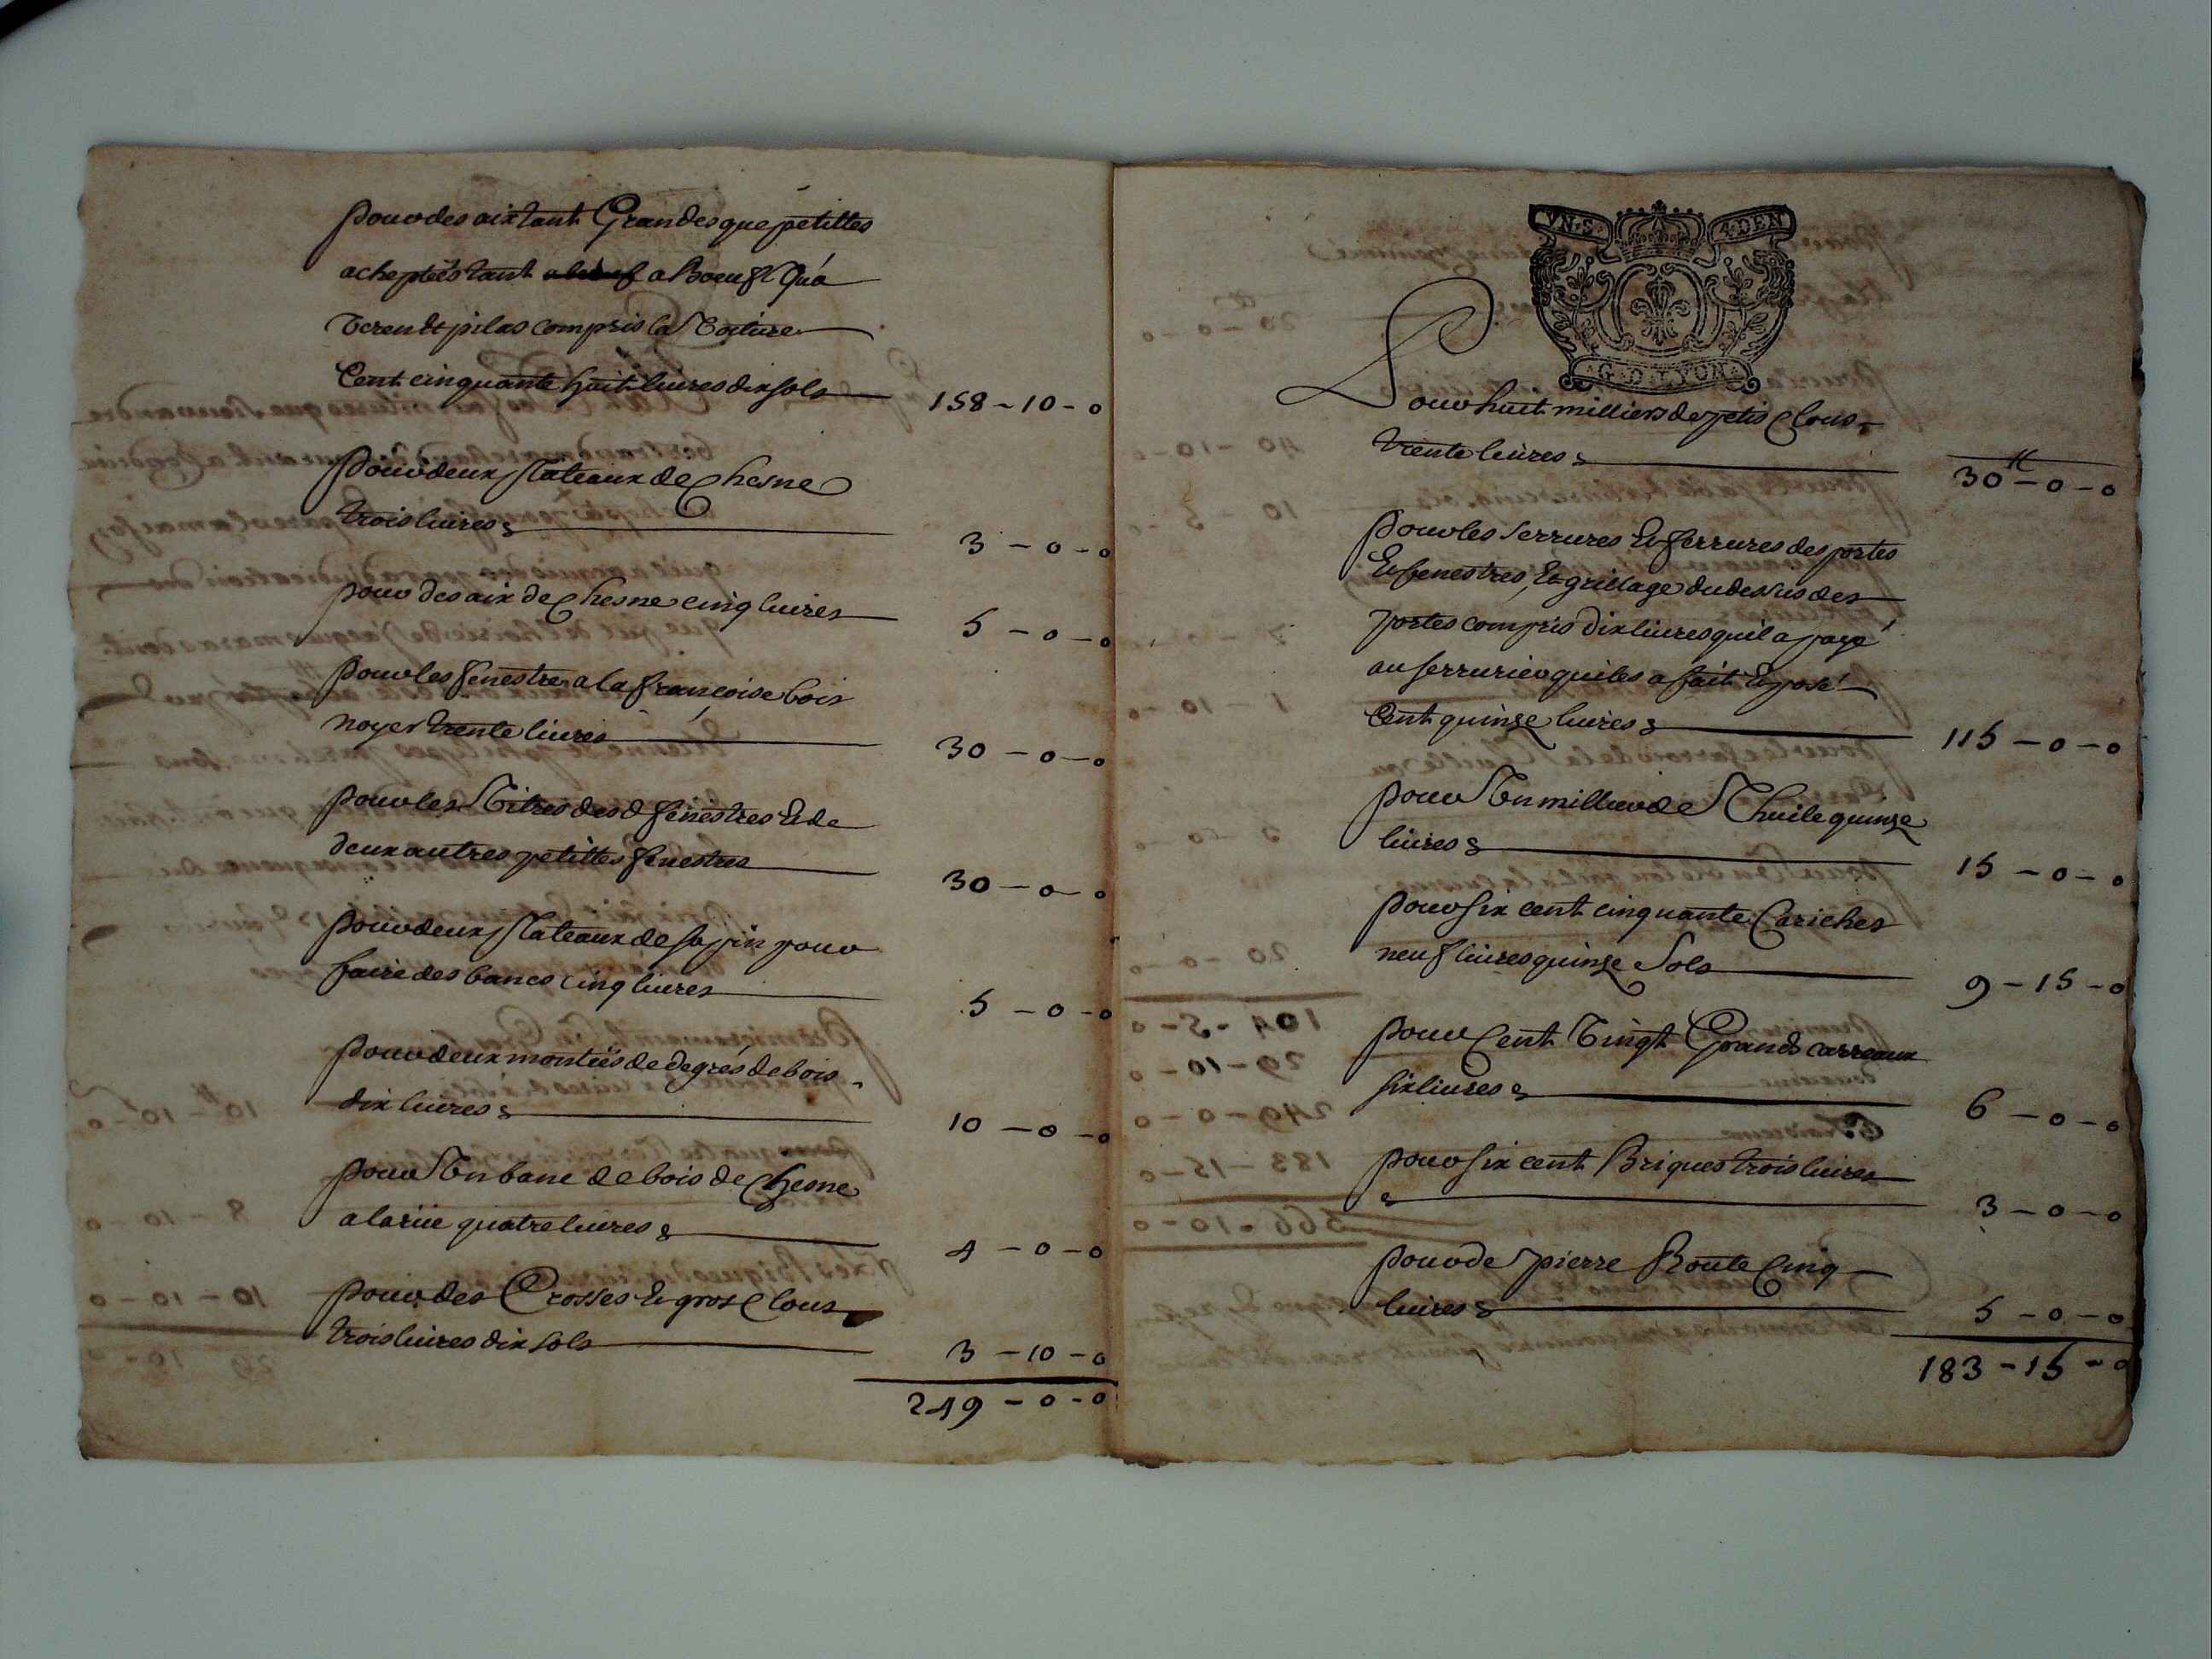 pour des aix tant Grandes que petittes
acheptées tant a Boeuf Qu'a
Verend & pilas compris la Voiture
Cent cinquante huit livres dix sols 158 - 10 - 0
pour deux plateaux de chesne
trois livres 3 - 0 - 0
pour des aix de chesne cinq livres 5 - 0 - 0
pour les fenestres a la françoise bois
noyer trente livres 30 - 0 - 0
pour les Vitres des d fenestres & de
deux autres petittes fenestres 30 - 0 - 0
pour deux plateaux de sappin pour
faire des bancs cinq livres 5 - 0 - 0
pour deux montées de degrés de bois
dix livres 10 - 0 - 0
pour Un banc de bois de Chesne
a la rüe quatre livres 4 - 0 - 0
pour des Crosses & gros Clous
trois livres dix sols 3 - 10 - 0
249 - 0 - 0
VN · S · 4 · DEN
G · D · LYON
Pour huit milliers de petis Clous
trente livres 30 ₶ - 0 - 0
pour les Serrures & ferrures des portes
& fenestres, & grillage du dessus des
portes compris dix livres quil a payé
au serrurier qui les a fait & posé
Cent quinze livres 115 - 0 - 0
pour Un millier de Thuile quinze
livres 15 - 0 - 0
pour six cent cinquante Cariches
neuf livres quinze Sols 9 - 15 - 0
pour Cent Vingt Grands carreaux
six livres 6 - 0 - 0
pour six cent Briques trois livres
3 - 0 - 0
pour de pierre Route Cinq
livres 5 - 0 - 0
183 - 15 - 0